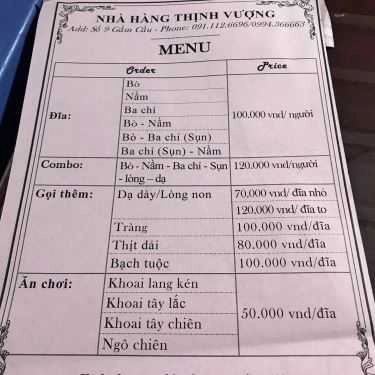 NHÀ HÀNG THỊNH VƯỢNG
Add: Số 9 Gầm Cầu - Phone: 091.112.6696/0994.366663
MENU
Order Price
Đĩa:
Bò
Nầm
Ba chỉ
Bò - Nầm
Bò - Ba chỉ (Sụn)
Ba chỉ (Sụn) - Nầm
100.000 vnđ/người
Combo: Bò - Nầm - Ba chỉ - Sụn - lòng – dạ 120.000 vnđ/người
Gọi thêm: Dạ dày/Lòng non 70.000 vnđ/ đĩa nhỏ
120.000 vnđ/ đĩa to
Tràng 100.000 vnđ/đĩa
Thịt dải 80.000 vnđ/đĩa
Bạch tuộc 100.000 vnđ/đĩa
Ăn chơi:
Khoai lang kén
Khoai tây lắc
Khoai tây chiên
Ngô chiên
50.000 vnđ/đĩa